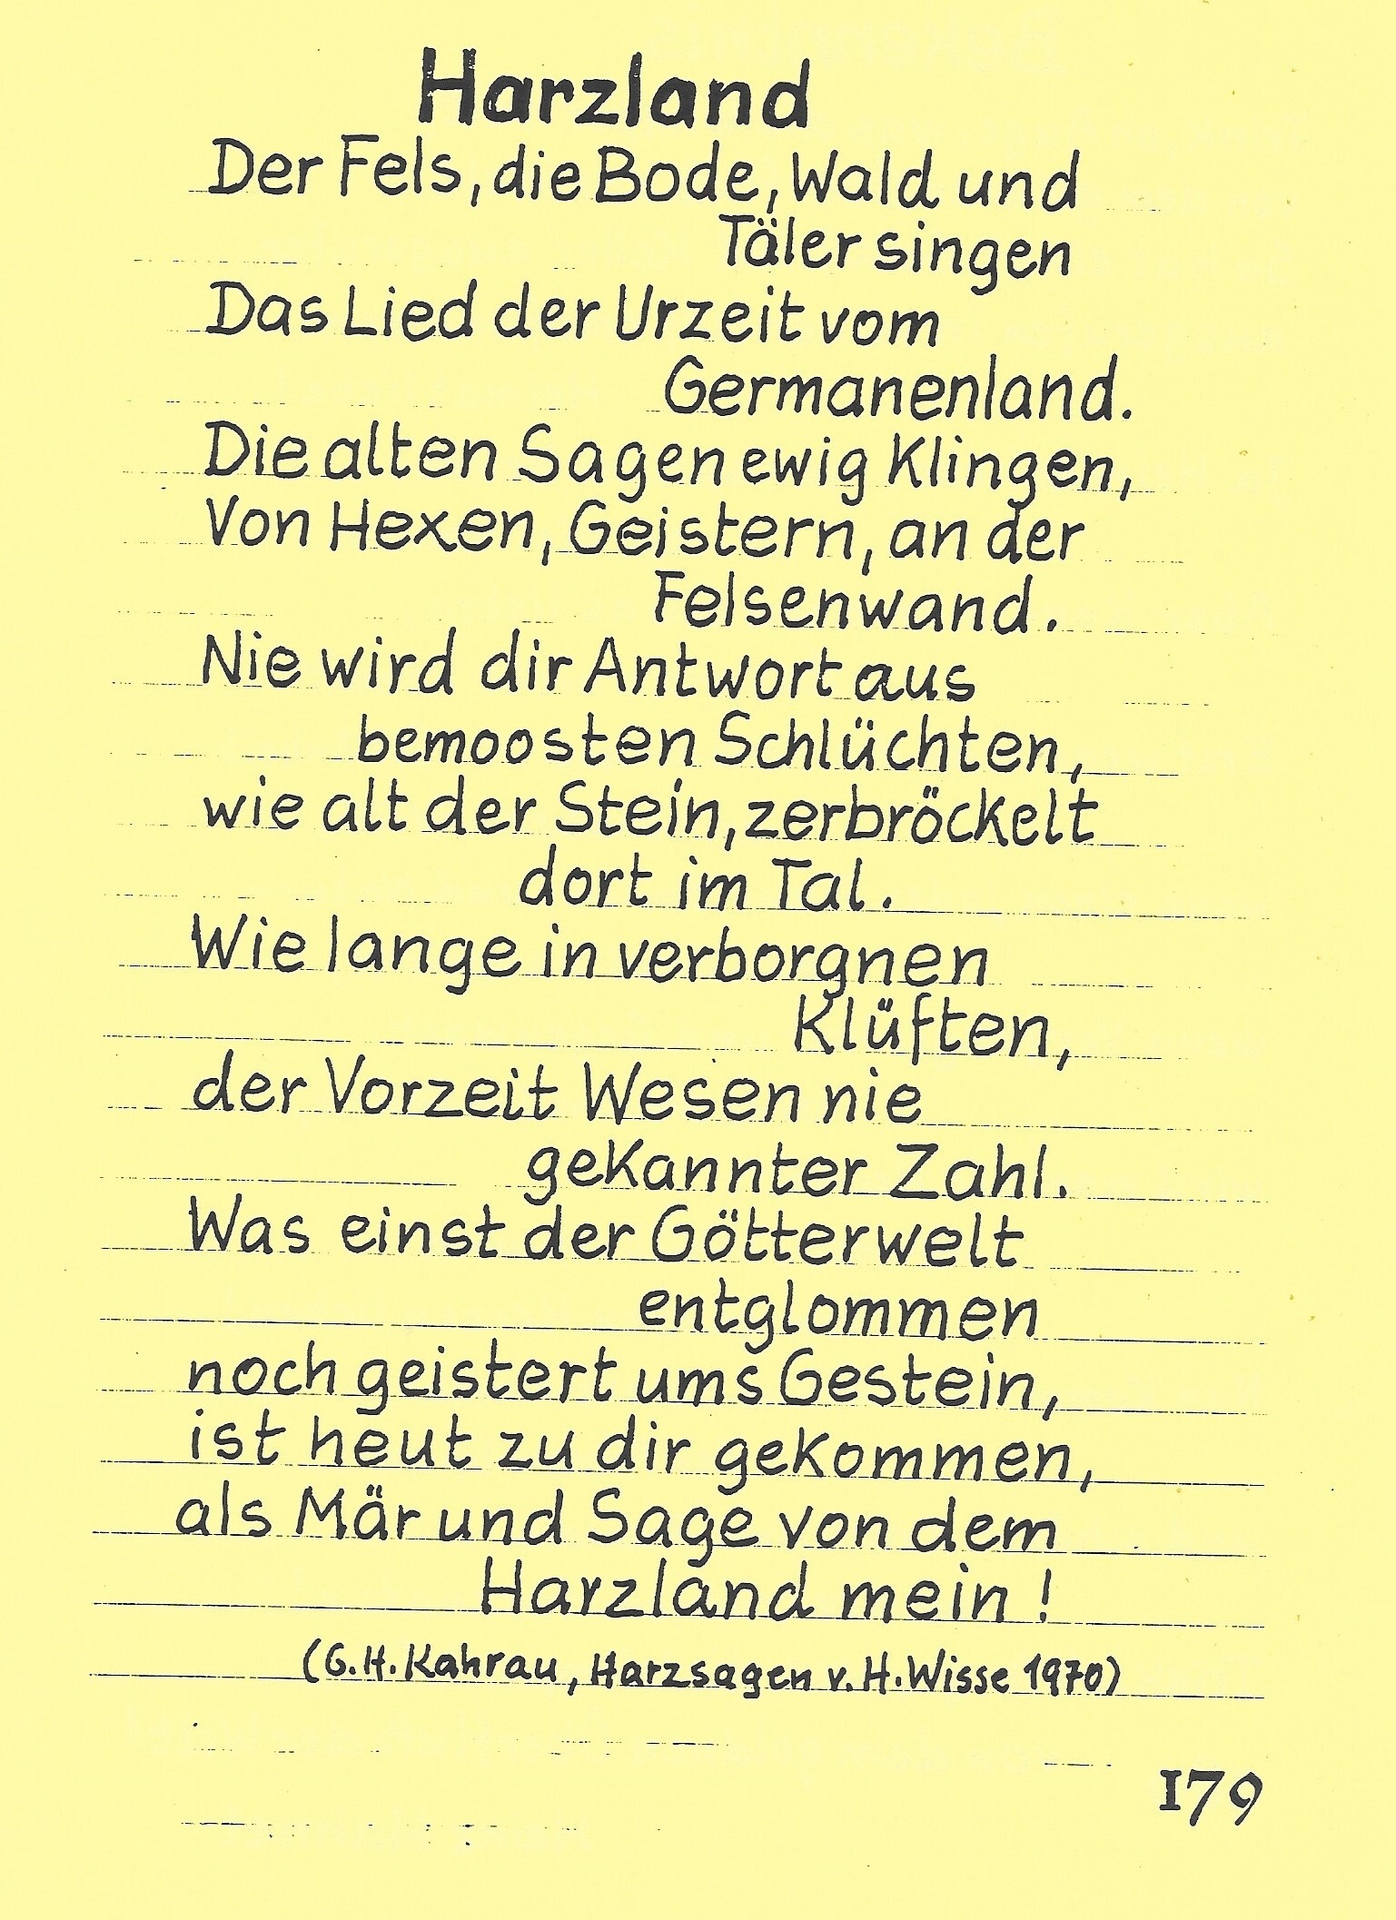 Harzland
Der Fels, die Bode, Wald und
Täler singen
Das Lied der Urzeit vom
Germanenland.
Die alten Sagen ewig Klingen,
Von Hexen, Geistern, an der
Felsenwand.
Nie wird dir Antwort aus
bemoosten Schlüchten,
wie alt der Stein, zerbröckelt
dort im Tal.
Wie lange in verborgnen
Klüften,
der Vorzeit Wesen nie
gekannter Zahl.
Was einst der Götterwelt
entglommen
noch geistert ums Gestein,
ist heut zu dir gekommen,
als Mär und Sage von dem
Harzland mein !
(G.H.Kahrau, Harzsagen v. H.Wisse 1970)
179